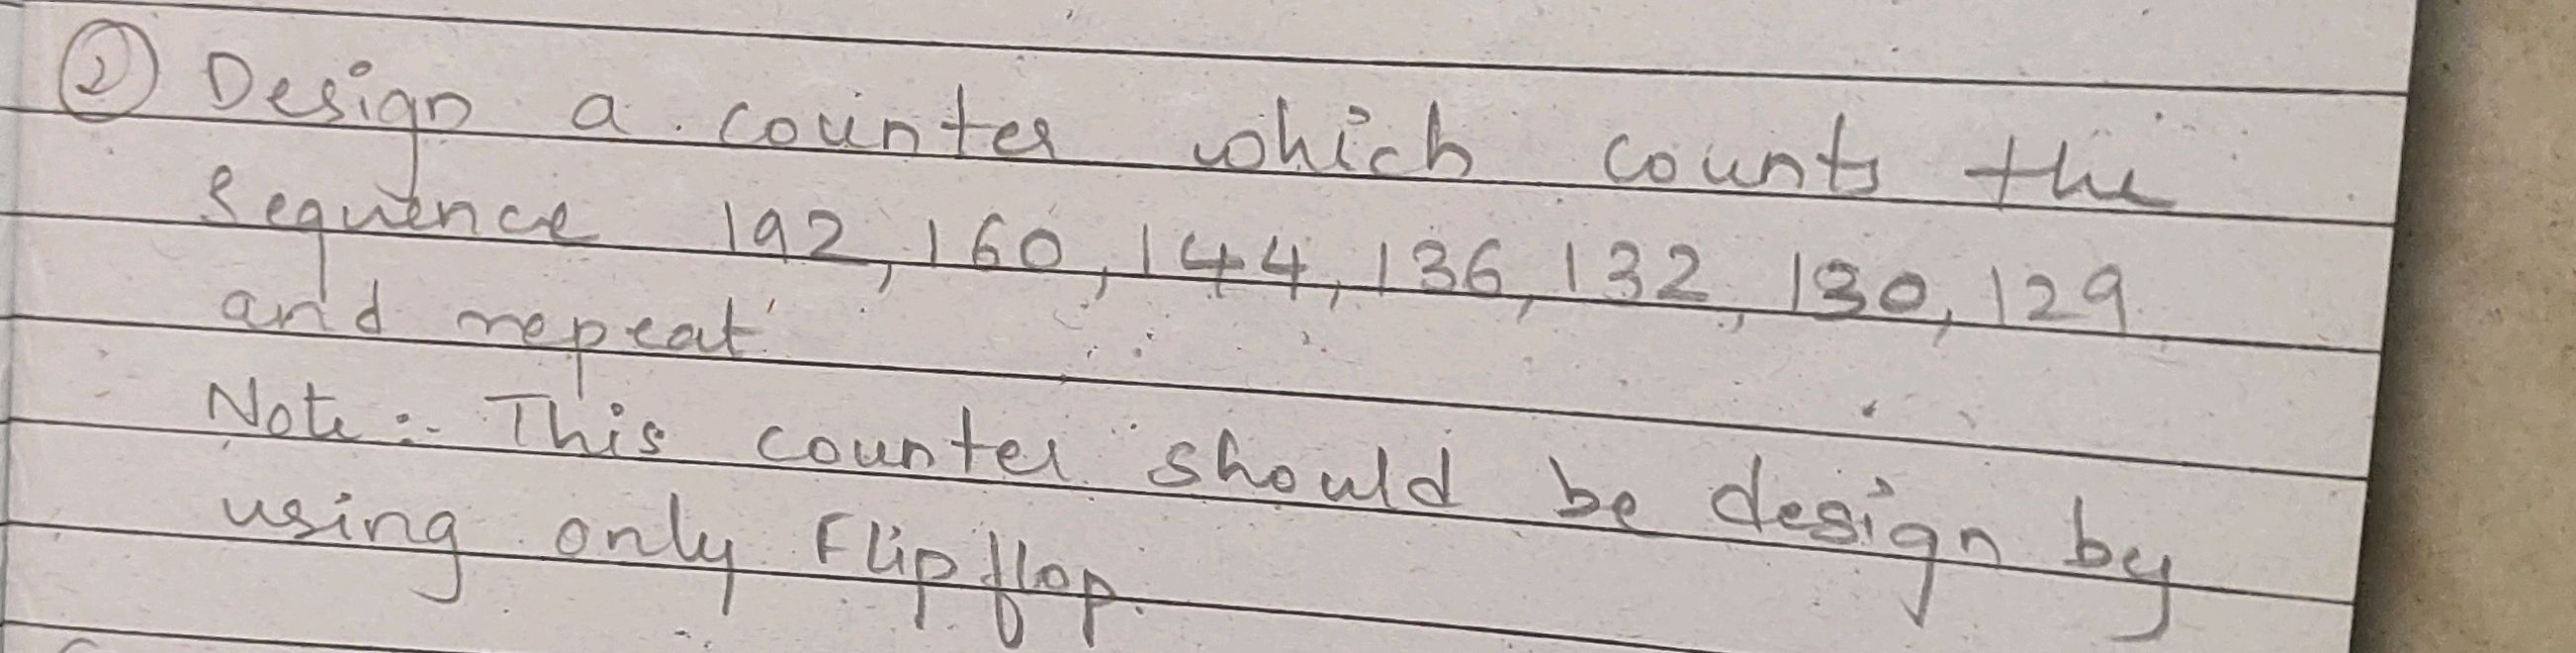 ② Design a counter which counts the
Sequence 192, 160, 144, 136, 132, 130, 129
and repeat
Note :- This counter should be design by
using only Flipflop.